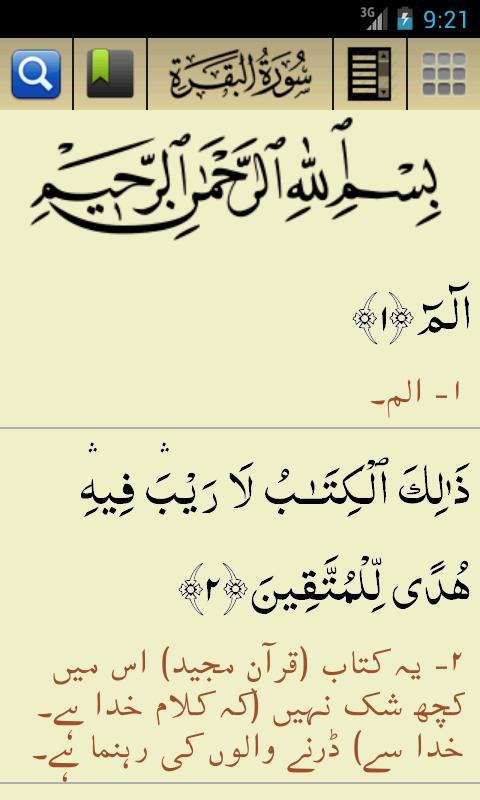 3G 9:21
سُورَةُ البَقَرَة
بِسْمِ ٱللَّهِ ٱلرَّحْمَٰنِ ٱلرَّحِيمِ
الٓمٓ ﴿١﴾
١- الم۔
ذَٰلِكَ ٱلْكِتَـٰبُ لَا رَيْبَ ۛ فِيهِ ۛ
هُدًى لِّلْمُتَّقِينَ ﴿٢﴾
٢- یہ کتاب (قرآن مجید) اس میں
کچھ شک نہیں (کہ کلام خدا ہے۔
خدا سے) ڈرنے والوں کی رہنما ہے۔